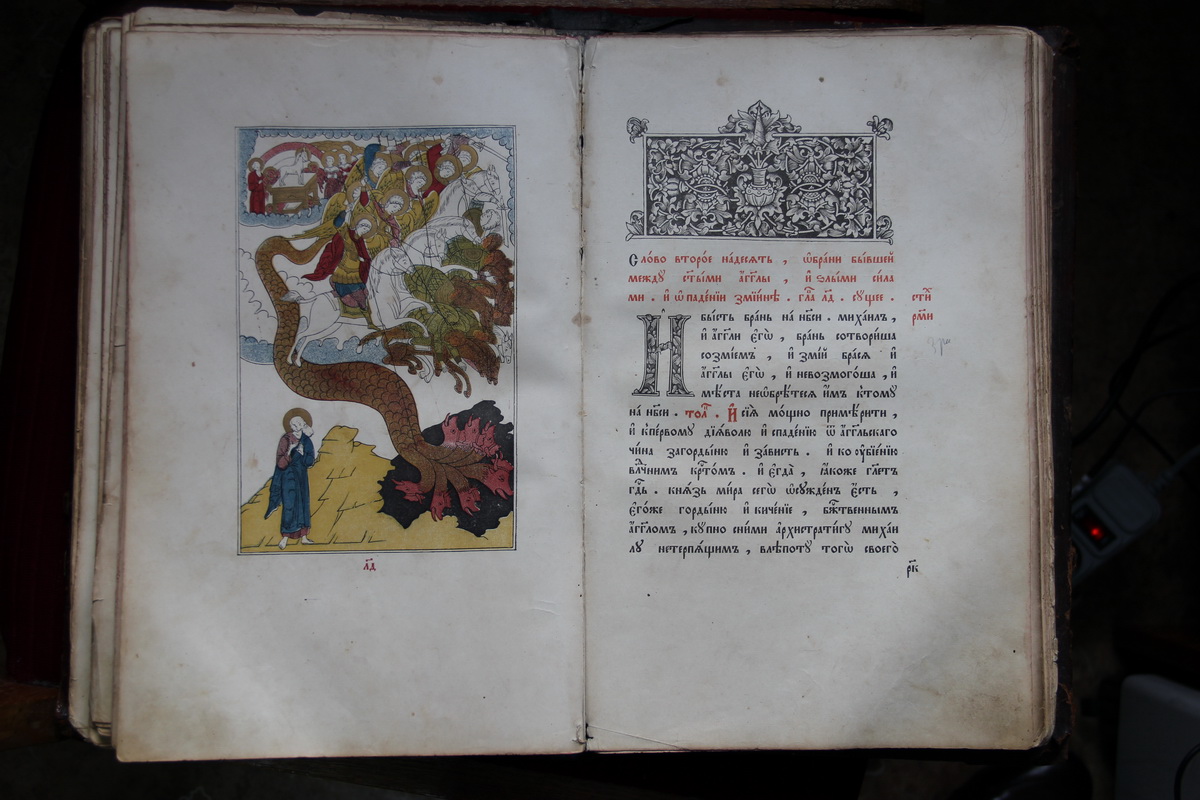 л҃д
Сло́во второ́е на́десять , ѡ҆бра́ни бы́вшей
между ст҃ы́ми а҆́гг҃лы , и҆ ѕлы́ми си́ла
ми . и҆ ѡ҆ паде́нїи змі́инѣ . гл҃а л҃д . су́щее . сті́х
рм҃и
И҆ бы́сть бра́нь на́ нб҃си . михаи́лъ ,
и҆ а҆́гг҃ли є҆гѡ̀ , бра́нь сотвори́ша
созмі́емъ , и҆ змі́й бра́ся и҆
а҆́гг҃лы є҆гѡ̀ , и҆ невозмого́ша , и҆
мѣ́ста неѡ҆брѣ́теся и҆̀мъ ктому
на́ нб҃си . тол . И҆ сїѧ̀ мо́щно примѣри́ти ,
и҆ кпе́рвому дїѧ́волу и҆ спаде́нїю ѿ а҆́гг҃льскаго
чи́на загорды́ню и҆ за́висть . и҆ ко ᲂу҆бїе́нїю
влⷣчнимъ крⷭ҇то́мъ . и҆ є҆гда̀ , ꙗ҆́коже гл҃етъ
гдⷭ҇ь . кня́зь ми́ра сегѡ̀ ѡ҆сужде́нъ є҆́сть ,
є҆го́же горды́ню и҆ киче́нїе , бж҃твеннымъ
а҆́гг҃ломъ , ку́пно сни́ми а҆рхистрати́гу михаи́
лу нетерпѧ́щимъ , влѣ́поту тогѡ̀ своего̀
рк҃